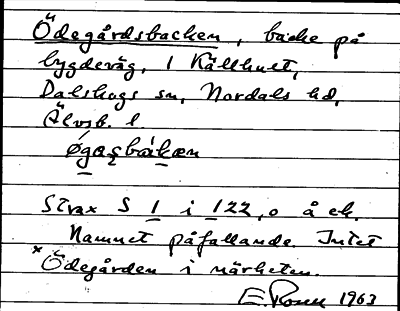 Ödegårdsbacken, backe på
bygdeväg, i Källhult,
Dalskogs sn, Nordals hd,
Älvsb. l.
øgasbakæn
Strax S 1 i 122,0 å ek.
Namnet påfallande. Intet
*Ödegården i närheten.
E. Rosen 1963